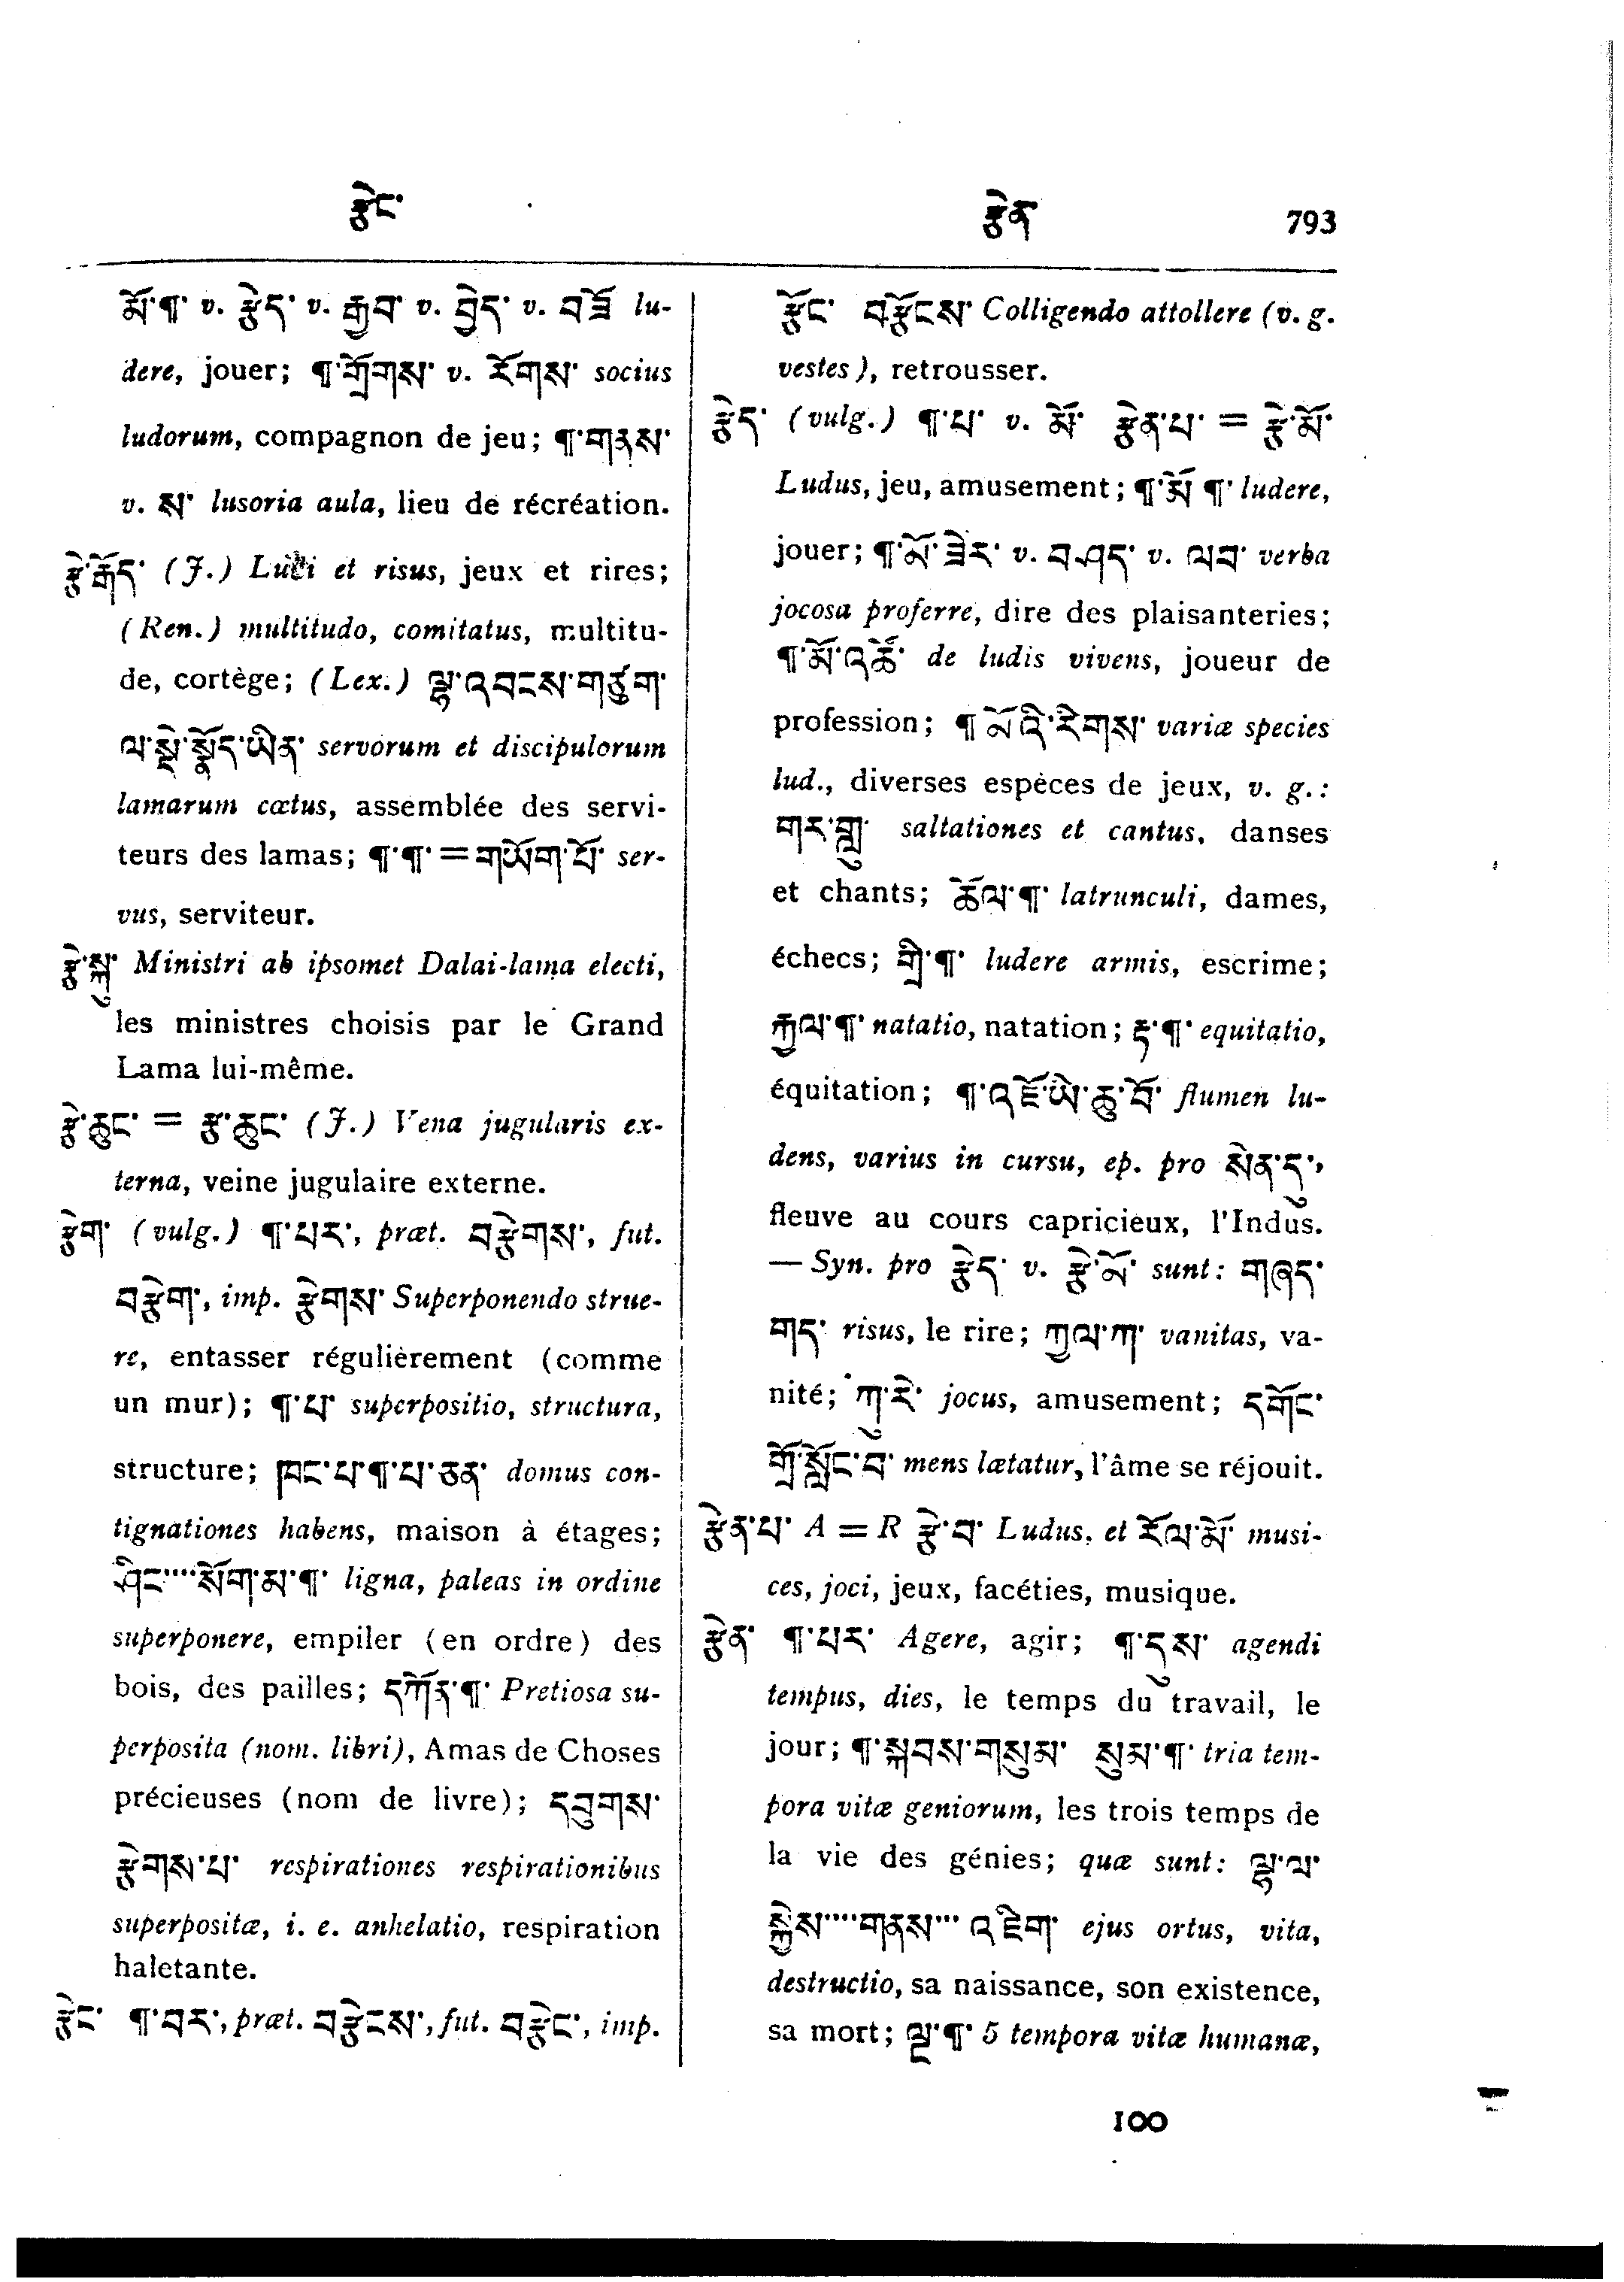 རྩེང་ རྩེན་ 793
མོ་¶་ v. རྩེད་ v. རྒྱབ་ v. བྱེད་ v. བཟོ lu-
dere, jouer; ¶་གྲོགས་ v. རོགས་ socius
ludorum, compagnon de jeu; ¶་གནས་
v. ས་ lusoria aula, lieu de récréation.
རྩེ་རྒོད་ (J.) Ludi et risus, jeux et rires;
(Ren.) multitudo, comitatus, multitu-
de, cortège; (Lex.) ལྷ་འབངས་གཙུག་
ལ་སྡེ་སྣོད་ཡིན་ servorum et discipulorum
lamarum cœtus, assemblée des servi-
teurs des lamas; ¶་¶་ = གཡོག་པོ་ ser-
vus, serviteur.
རྩེ་སྐུ་ Ministri ab ipsomet Dalai-lama electi,
les ministres choisis par le Grand
Lama lui-même.
རྩེ་ཆུང་ = རྩ་ཆུང་ (J.) Vena jugularis ex-
terna, veine jugulaire externe.
རྩེག་ (vulg.) ¶་པར་, præt. བརྩེགས་, fut.
བརྩེག་, imp. རྩེགས་ Superponendo strue-
re, entasser régulièrement (comme
un mur); ¶་པ་ superpositio, structura,
structure; ཁང་པ་¶་པ་ཅན་ domus con-
tignationes habens, maison à étages;
ཤིང་····སོག་མ་¶་ ligna, paleas in ordine
superponere, empiler (en ordre) des
bois, des pailles; དཀོན་¶་ Pretiosa su-
perposita (nom. libri), Amas de Choses
précieuses (nom de livre); དབུགས་
རྩེགས་པ་ respirationes respirationibus
superpositæ, i. e. anhelatio, respiration
haletante.
རྩེང་ ¶་བར་, præt. བརྩེངས་, fut. བརྩེང་, imp.
རྩོང་ བརྩོངས་ Colligendo attollere (v. g.
vestes), retrousser.
རྩེད་ (vulg.) ¶་པ་ v. མོ་ རྩེན་པ་ = རྩེ་མོ་
Ludus, jeu, amusement; ¶་མོ ¶་ ludere,
jouer; ¶་མོ་ཟེར་ v. བཤད་ v. ལབ་ verba
jocosa proferre, dire des plaisanteries;
¶་མོ་འཚོ་ de ludis vivens, joueur de
profession; ¶ མོའི་རིགས་ variæ species
lud., diverses espèces de jeux, v. g.:
གར་གླུ་ saltationes et cantus, danses
et chants; ཆོལ་¶་ latrunculi, dames,
échecs; གྲི་¶་ ludere armis, escrime;
རྐྱལ་¶་ natatio, natation; རྟ་¶་ equitatio,
équitation; ¶་འཇོ་ཡེ་ཆུ་བོ་ flumen lu-
dens, varius in cursu, ep. pro སེན་དུ་,
fleuve au cours capricieux, l'Indus.
— Syn. pro རྩེད་ v. རྩེ་མོ་ sunt: གཞད་
གད་ risus, le rire; ཀྱལ་ཀ་ vanitas, va-
nité; ཀུ་རེ་ jocus, amusement; དགོང་
གྲོ་སློང་བ་ mens lætatur, l'âme se réjouit.
རྩེན་པ་ A = R རྩེ་བ་ Ludus, et རོལ་མོ་ musi-
ces, joci, jeux, facéties, musique.
རྩེན་ ¶་པར་ Agere, agir; ¶་དུས་ agendi
tempus, dies, le temps du travail, le
jour; ¶་སྐབས་གསུམ་ སུམ་¶་ tria tem-
pora vitæ geniorum, les trois temps de
la vie des génies; quæ sunt: ལྷ་ལ་
སྐྱེས་····གནས་··· འཇིག་ ejus ortus, vita,
destructio, sa naissance, son existence,
sa mort; ལྔ་¶་ 5 tempora vitæ humanæ,
100